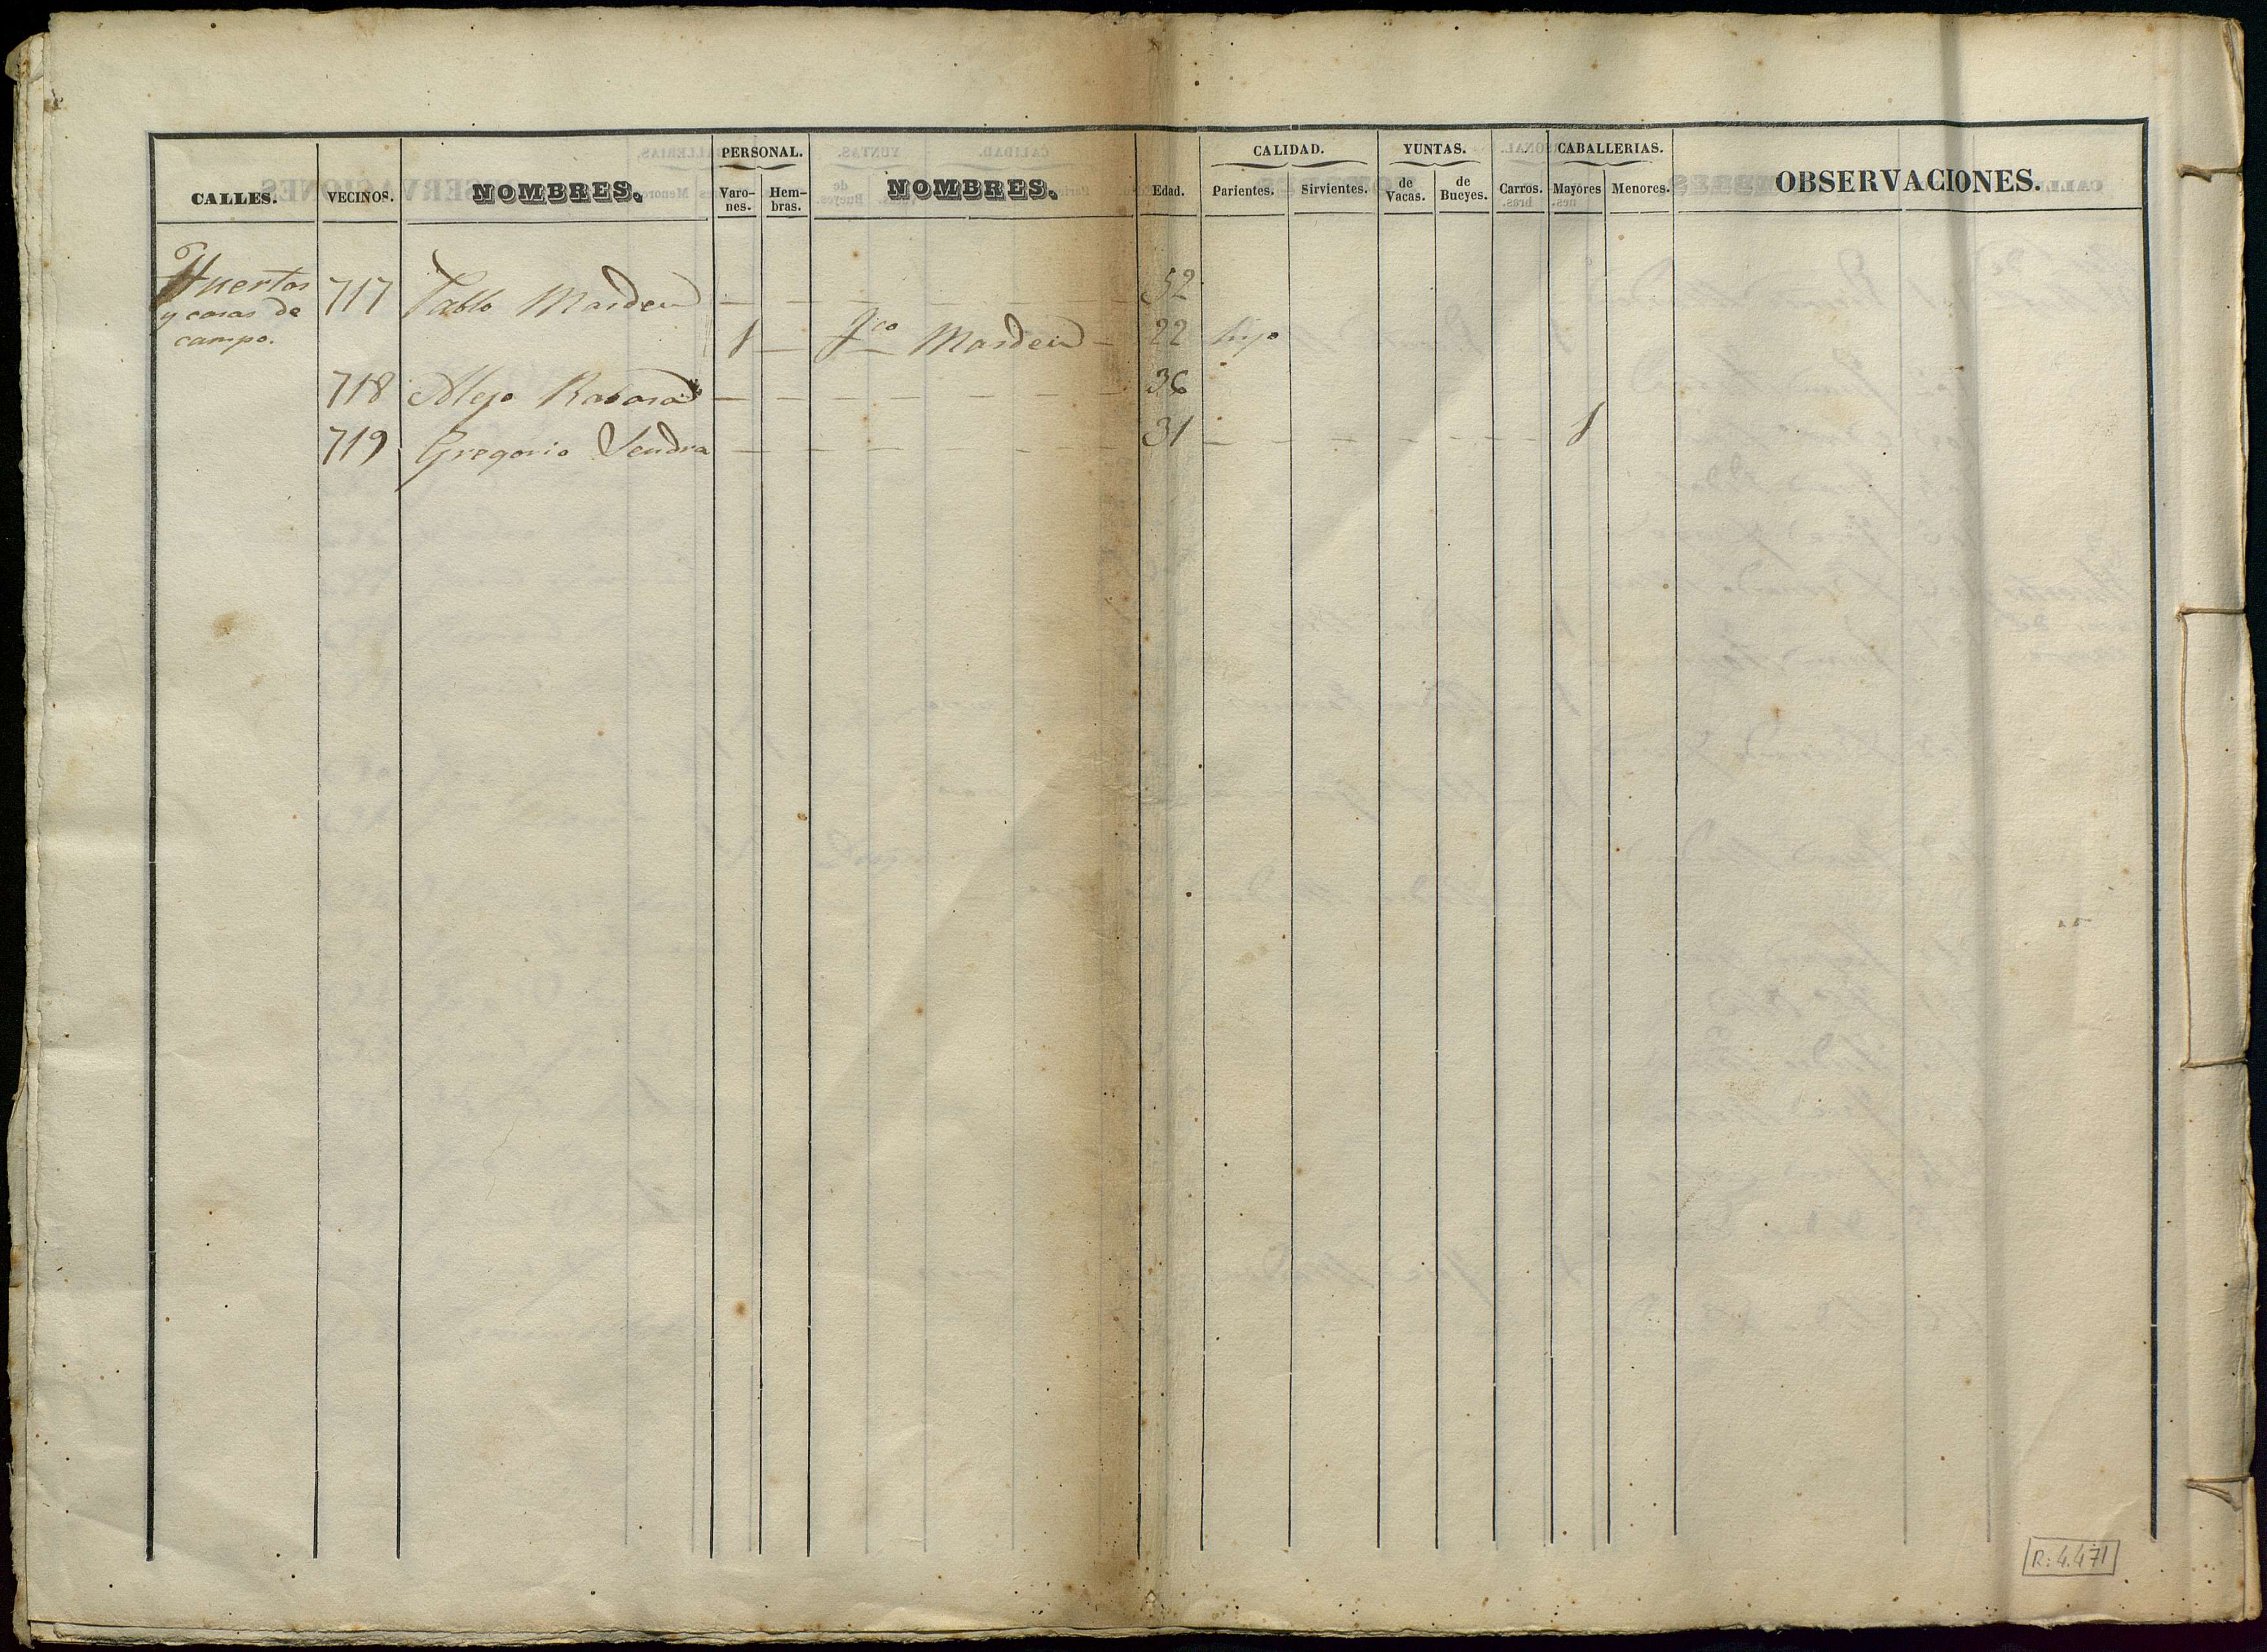 PERSONAL. CALIDAD. YUNTAS. CABALLERIAS.
CALLES. VECINOS. NOMBRES. Varones. Hembras. NOMBRES. Edad. Parientes. Sirvientes. de Vacas. de Bueyes. Carros. Mayores Menores. OBSERVACIONES.
Huertos 717 Pablo 52
y casas de
campo. 1 Fco 22 hijo
718 Alejo 36
719 Gregorio Sendra 31 1
R: 4.471